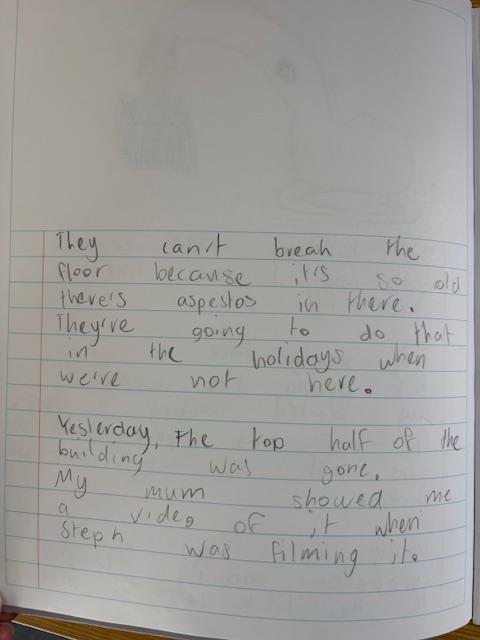 They can't break the
floor because it's so old
there's aspestos in there.
They're going to do that
in the holidays when
we're not here.
Yesterday, the top half of the
building was gone.
My mum showed me
a video of it when
Steph was filming it.